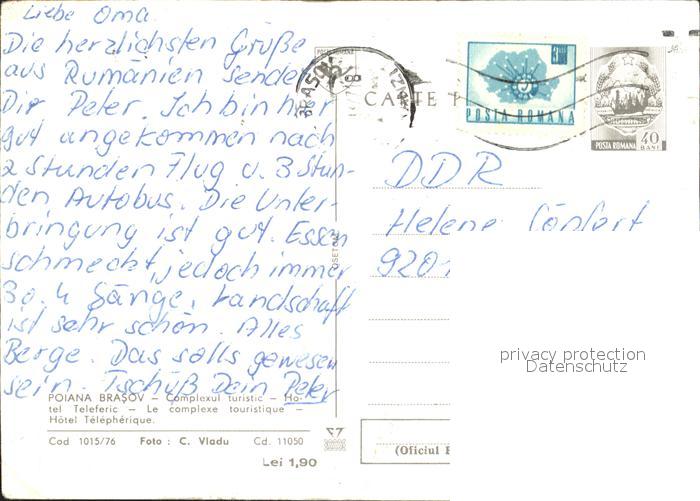 Liebe Oma.
Die herzlichsten Grüße
aus Rumänien sendet
Dir Peter. Ich bin hier
gut angekommen nach
2 Stunden Flug u. 3 Stun-
den Autobus. Die Unter-
bringung ist gut. Essen
schmeckt, jedoch immer
3 o. 4 Gänge. Landschaft
ist sehr schön. Alles
Berge. Das solls gewesen
sein. Tschüß Dein Peter
POIANA BRAȘOV – Complexul turistic – Ho-
tel Teleferic – Le complexe touristique –
Hôtel Téléphérique.
Cod 1015/76 Foto : C. Vladu Cd. 11050
Lei 1,90
BRAȘOV
CARTE P
3 LEI
POSTA ROMANA
POSTA ROMANA 40 BANI
DDR
Helene
9201
privacy protection
Datenschutz
(Oficiul